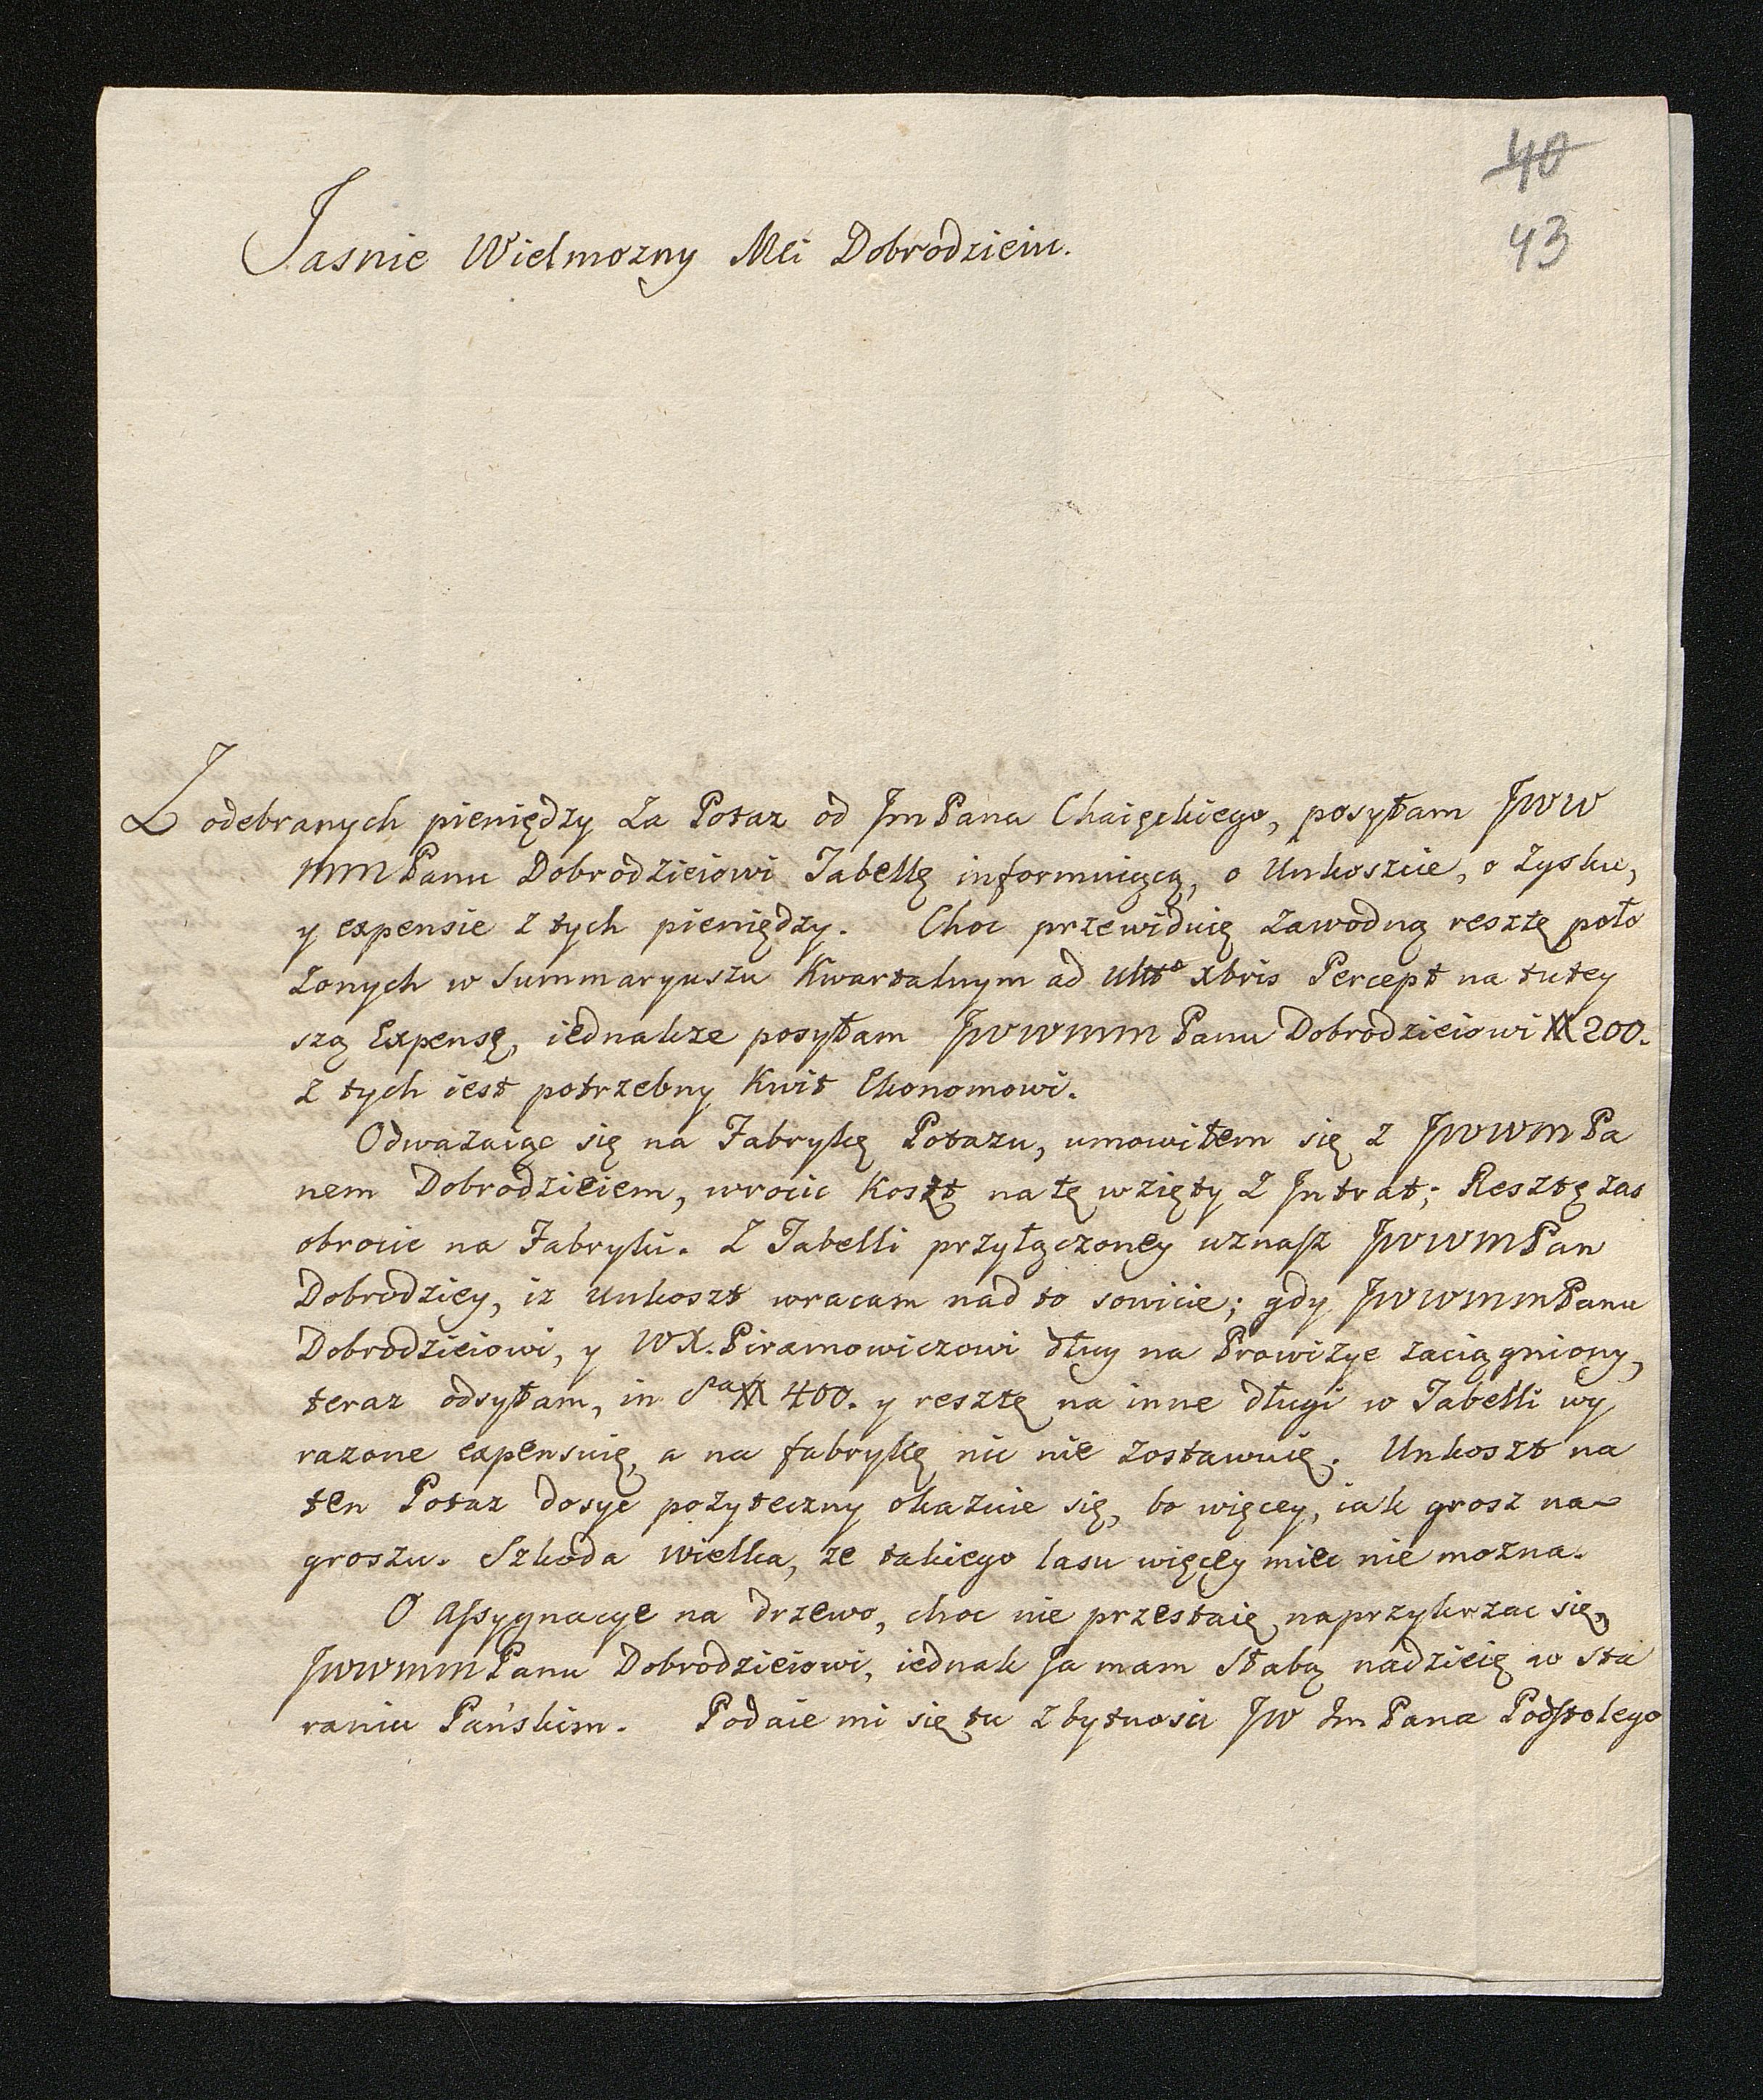 40
43
Jasnie Wielmozny Mci Dobrodzieiu.
Z odebranych pieniędzy za Potaz od Jm Pana Chaięckiego, posyłam JWW
mm Panu Dobrodzieiowi Tabellę informuiącą, o Unkoszcie, o zysku,
y expensie z tych pieniędzy. Choc przewiduię zawodną resztę poło
zonych w Summaryuszu Kwartalnym ad ult° xbris Percept na tutey
szą Expensę, iednakze posyłam JWWmm Panu Dobrodzieiowi # 200.
z tych iest potrzebny Kwit Ekonomowi.
Odwazaiąc się na Fabrykę Potazu, umowiłem się z JWWm Pa
nem Dobrodzieiem, wrocic Koszt na tę wzięty z Jntrat; Resztę zas
obrocic na Fabryki. Z Tabelli przyłączoney uznasz JWWmPan
Dobrodziey, iz unkoszt wracam nad to sowicie; gdy JWWmmPanu
Dobrodzieiowi, y WX. Piramowiczowi dług na Prowizye zaciągniony,
teraz odsyłam, in Sᵃ # 400. y resztę na inne długi w Tabelli wy
razone expensuię, a na fabrykę nic nie zostawuię. Unkoszt na
ten Potaz dosyc pozyteczny okazuie się, bo więcey, iak grosz na
groszu. Szkoda wielka, ze takiego lasu więcey miec nie mozna.
O Assygnacye na drzewo, choc nie przestaię naprzykrzac się,
JWWmm Panu Dobrodzieiowi, iednak Ja mam słabą nadzieię w sta
raniu Pańskim. Podaie mi się tu z bytnosci JW Jm Pana Podstolego